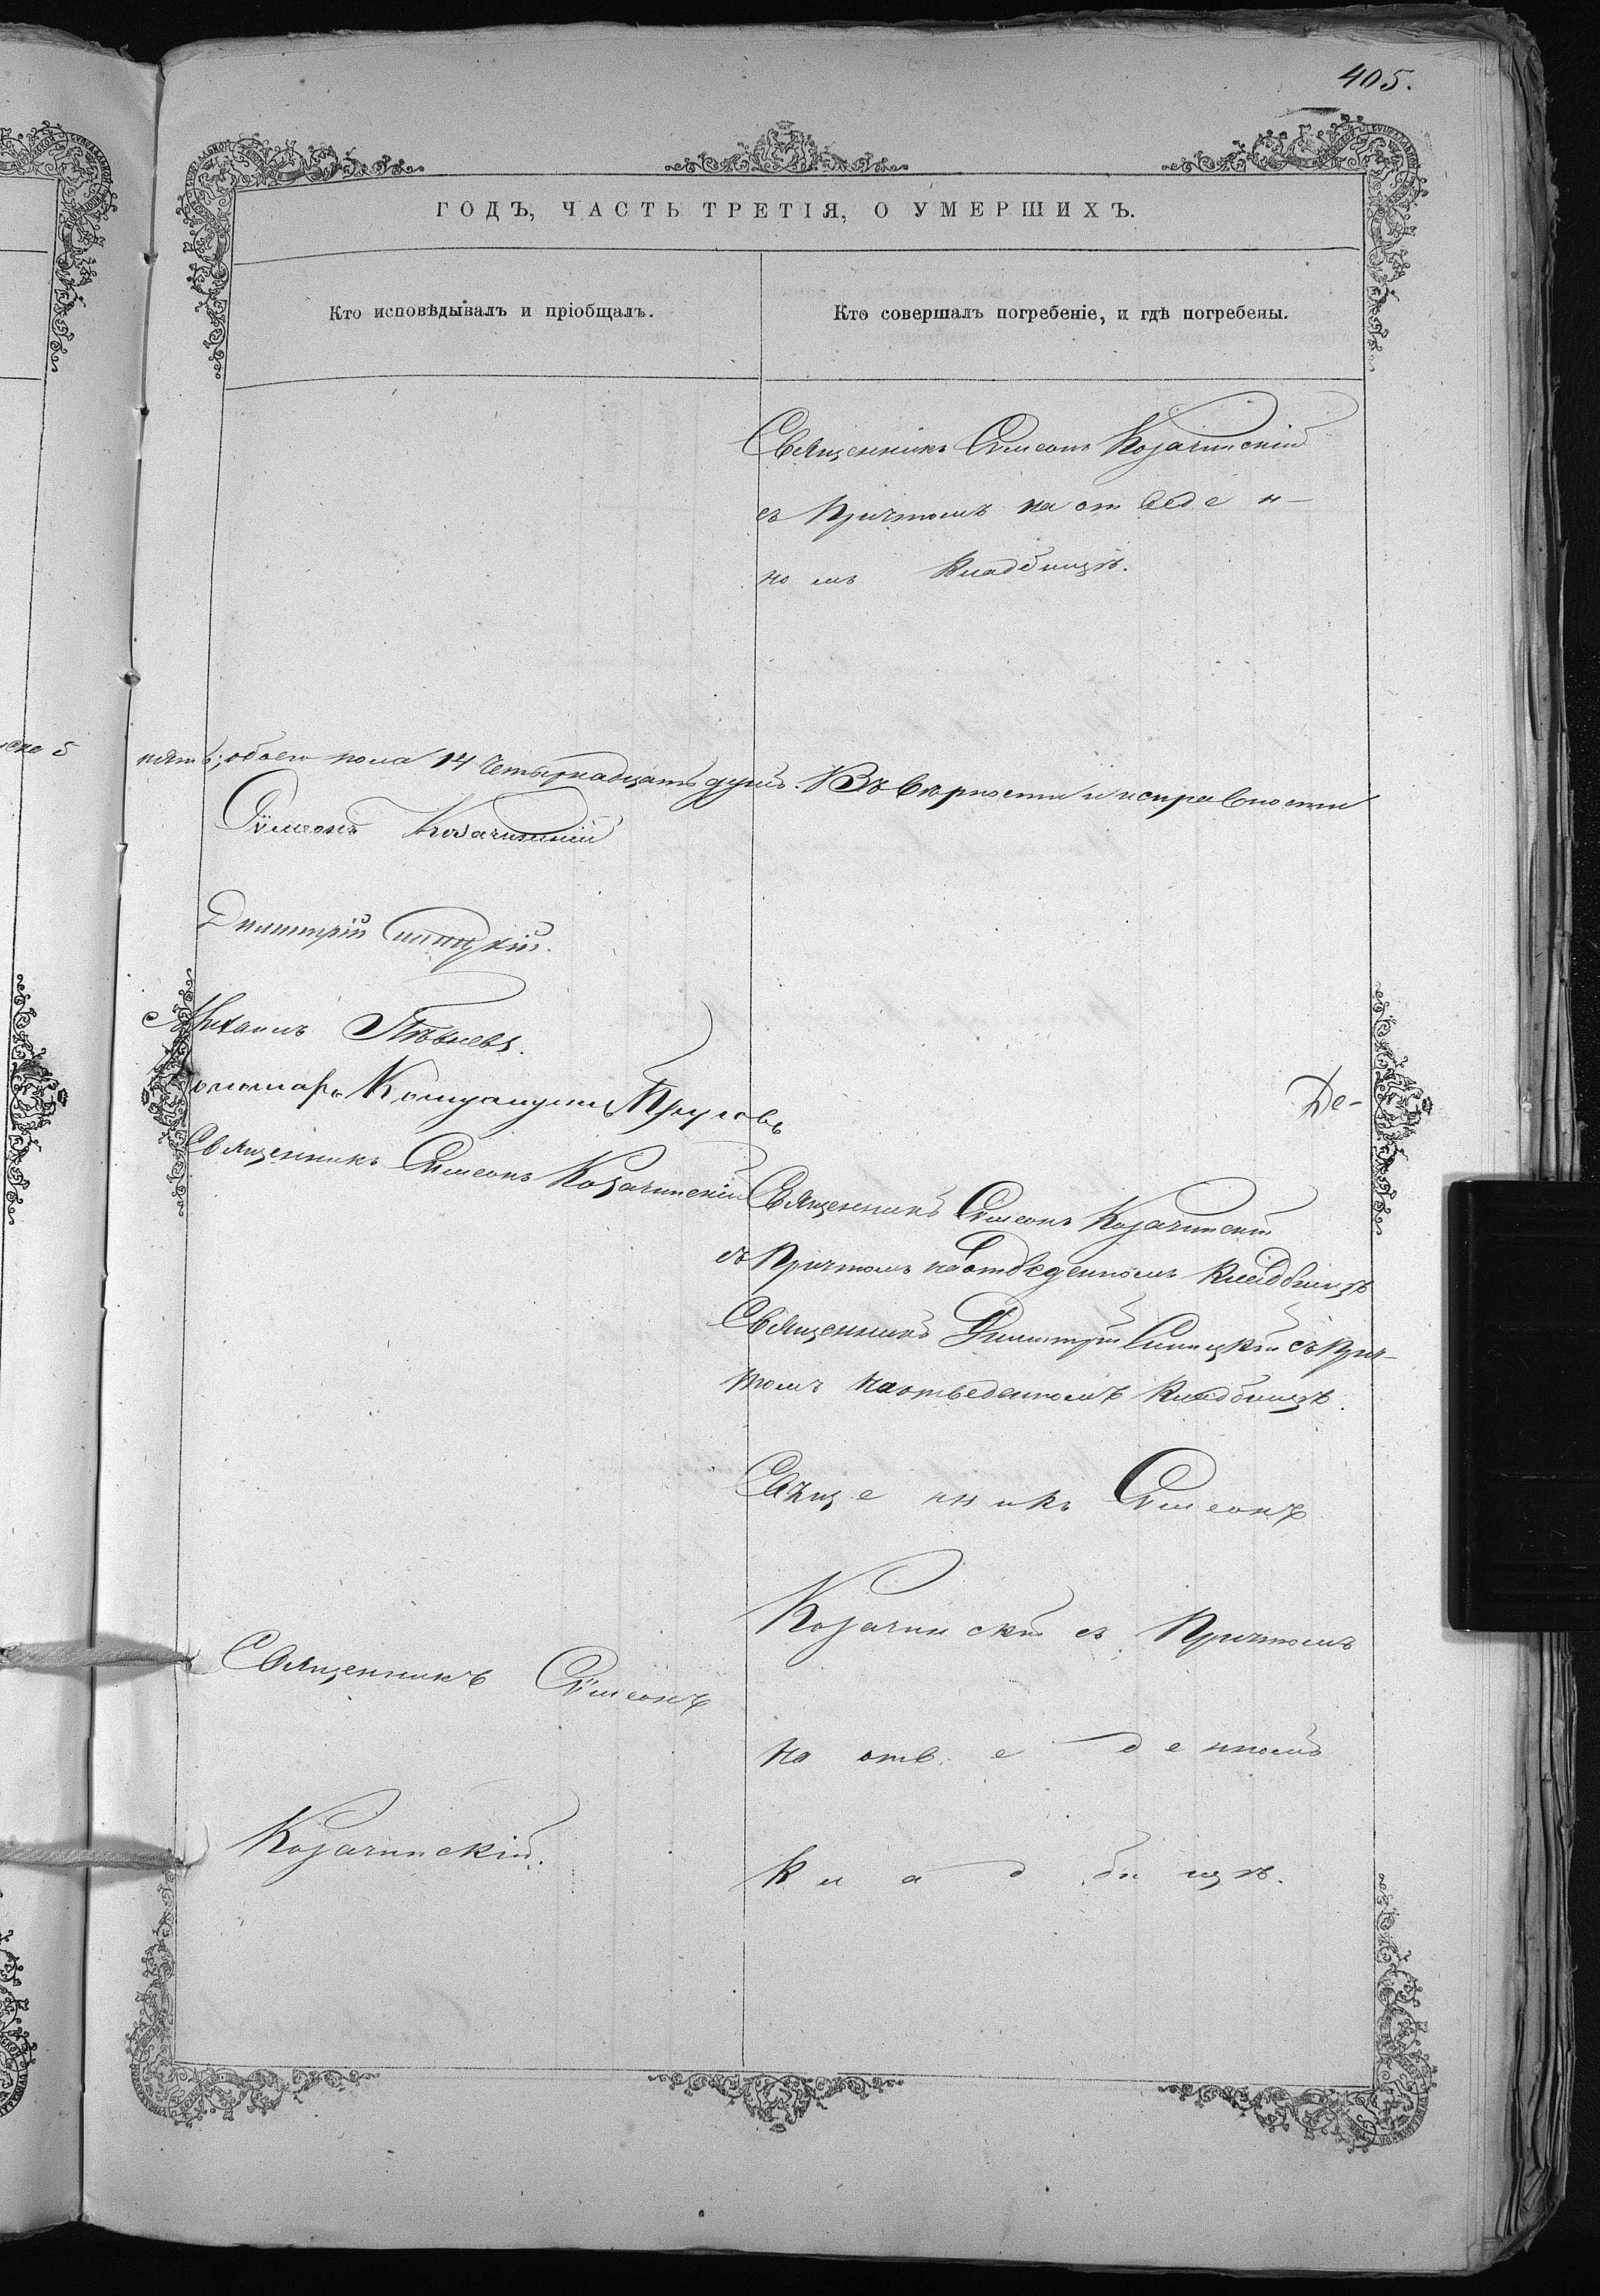 405.
ГОДЪ, ЧАСТЬ ТРЕТІЯ, О УМЕРШИХЪ.
Кто исповѣдывалъ и пріобщалъ.
Кто совершалъ погребеніе, и гдѣ погребены.
Священникъ Сѵмеонъ Козачинскій
съ Причтомъ на отведен-
номъ кладбищѣ.
пять; обоего пола 14 четырнадцать душъ. Въ вѣрности и исправности
Сѵмеонъ Козачинскій
Димитрій Синицкій.
Михаилъ
Пономарь Прусовъ
Де-
Священникъ Сѵмеонъ Козачинскій
Священникъ Сѵмеонъ Козачинскій
съ Причтомъ на отведенномъ кладбищѣ
Священникъ Димитрій Синицкій съ При-
томъ на отведенномъ кладбищѣ.
Священникъ Сѵмеонъ
Козачинскій съ Причтомъ
на отведенномъ
кладбищѣ.
Священникъ Сѵмеонъ
Козачинскій.